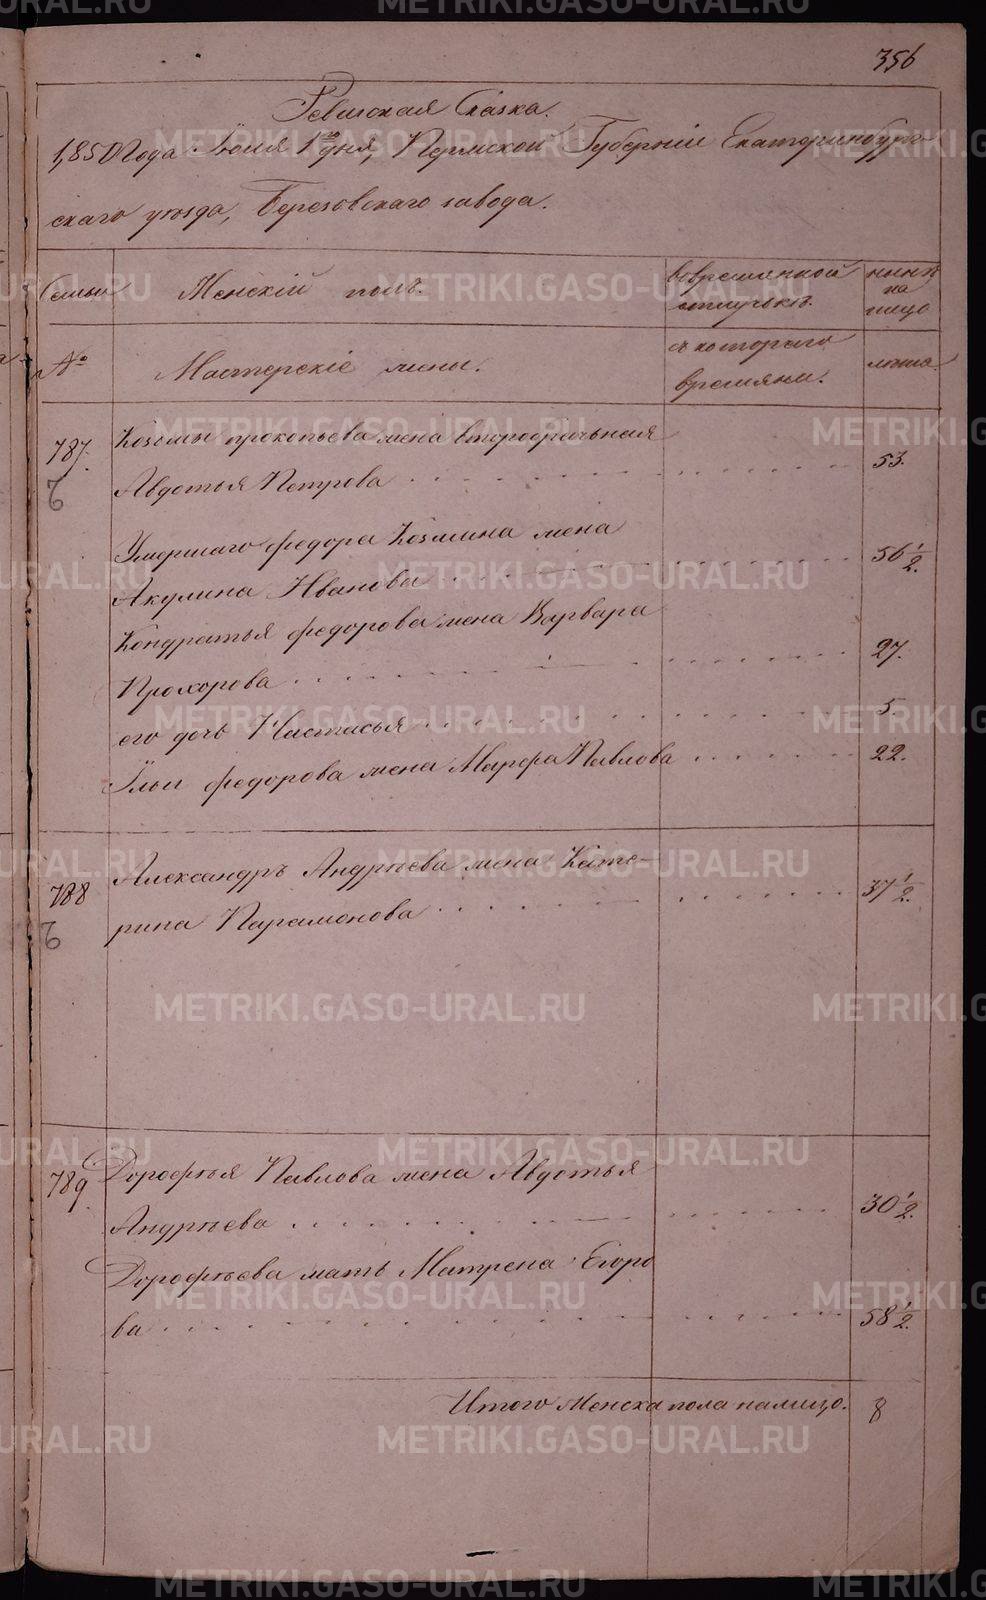 356
Ревизская Сказка.
1850 Года Июля 1го дня, Пермской Губерніи Екатеринбург-
скаго уѣзда, Березовскаго завода.
Семьи
Женскій полъ.
во временной
отлучкѣ.
нынѣ
на
лицо
№
Мастерскіе жены.
съ которого
времяни.
лѣта
787.
Козьмы прокопьева жена второбрачьная
Авдотья Петрова
53.
Умершаго федора Козмина жена
Акулина Иванова
56 1/2.
Кондратья федорова жена Варвара
Прохорова
27.
его дочь Настасья
5.
Ильи федорова жена Марфа Павлова
22.
788
Александръ Андрѣева жена Кате-
рина Парамонова
37 1/2.
789.
Дорофѣя Павлова жена Авдотья
Андрѣева
30 1/2.
Дорофѣева мать Матрена Егоро
ва
58 1/2.
Итого Женска пола налицо.
8
METRIKI.GASO-URAL.RU